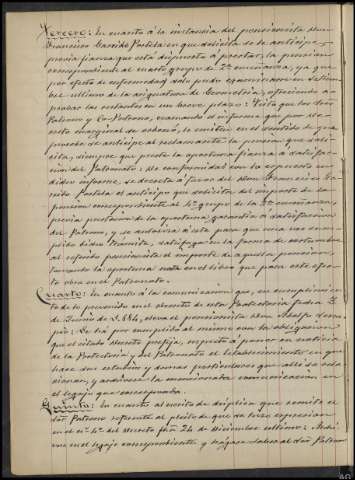 Tercero: En cuanto á la instancia del pensionista Don
Francisco Garrido Portela en que solicita se le anticipe,
previa fianza que está dispuesto á prestar, la pension
correspondiente al cuarto grupo de 2ª enseñanza, ya que
por efecto de enfermedad solo pudo examinarse en Setiem-
bre ultimo de la asignatura de Geometría, ofreciendo a-
probar las restantes en un breve plazo: Vista que los Sres
Patrono y Co-Patrono, evacuando el informe que por de-
creto marginal se ordenó, lo emiten en el sentido de que
procede se anticipe al reclamante la pension que soli-
cita, siempre que preste la oportuna fianza á satisfac-
cion del Patronato: de conformidad con la expuesto en
dicho informe, se decreta á favor del Don Francisco Ga-
rrido Portela el anticipo que solicita del importe de la
pension correspondiente al 4º grupo de la 2ª enseñanza,
previa prestacion de la oportuna garantía á satisfaccion
del Patrono, y se autoriza á este para que una vez cum-
plido dicho trámite, satisfaga en la forma de costumbre
al referido pensionista el importe de aquella pension,
tomando la oportuna nota en el libro que para este efec-
to obra en el Patronato.
Cuarto: En cuanto á la comunicacion que, en cumplimien-
to de lo prevenido en el decreto de esta Protectoría fecha 2
de Junio de 1.896, eleva el pensionista Don Adolfo
: Se há por cumplido al mismo con la obligacion
que el citado decreto prefija, respecto á poner en noticia
de la Protectoría y del Patronato el Establecimiento en que
hace sus estudios y demas particulares que alli se rela-
cionan, y archívese la mencionada comunicacion en
el legajo que corresponda.
Quinto: En cuanto al escrito de súplica que remite el
Sor Patrono referente al pleito de que se hizo expresion
en el nº 4º del decreto fha 24 de Diciembre ultimo:
en el legajo correspondiente y hágase saber al Sor Patrono